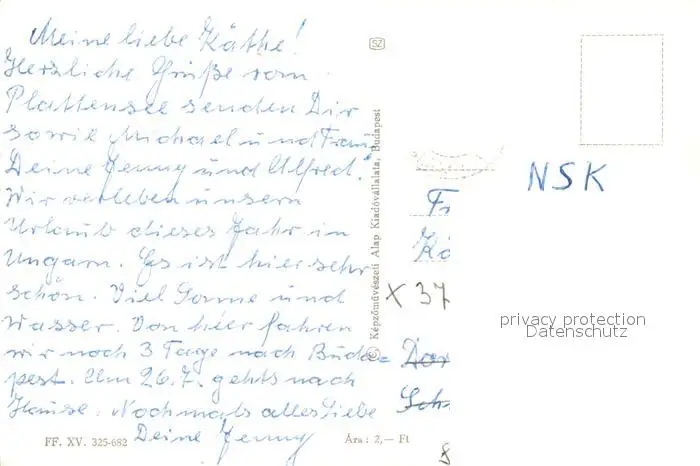 Meine liebe Käthe!
Herzliche Grüße vom
Plattensee senden Dir
sowie Michael und Frau
Deine Jenny und Alfred!
Wir verleben unsern
Urlaub dieses Jahr in
Ungarn. Es ist hier sehr
schön. Viel Sonne und
Wasser. Von hier fahren
wir noch 3 Tage nach Buda-
pest. Am 26.7. gehts nach
Hause. Nochmals alles Liebe
Deine Jenny
FF. XV. 325-682
Ára: 2,— Ft
SZ
© Képzőművészeti Alap Kiadóvállalata, Budapest
NSK
Fr
Kä
X 37
Dor
Sch
privacy protection
Datenschutz